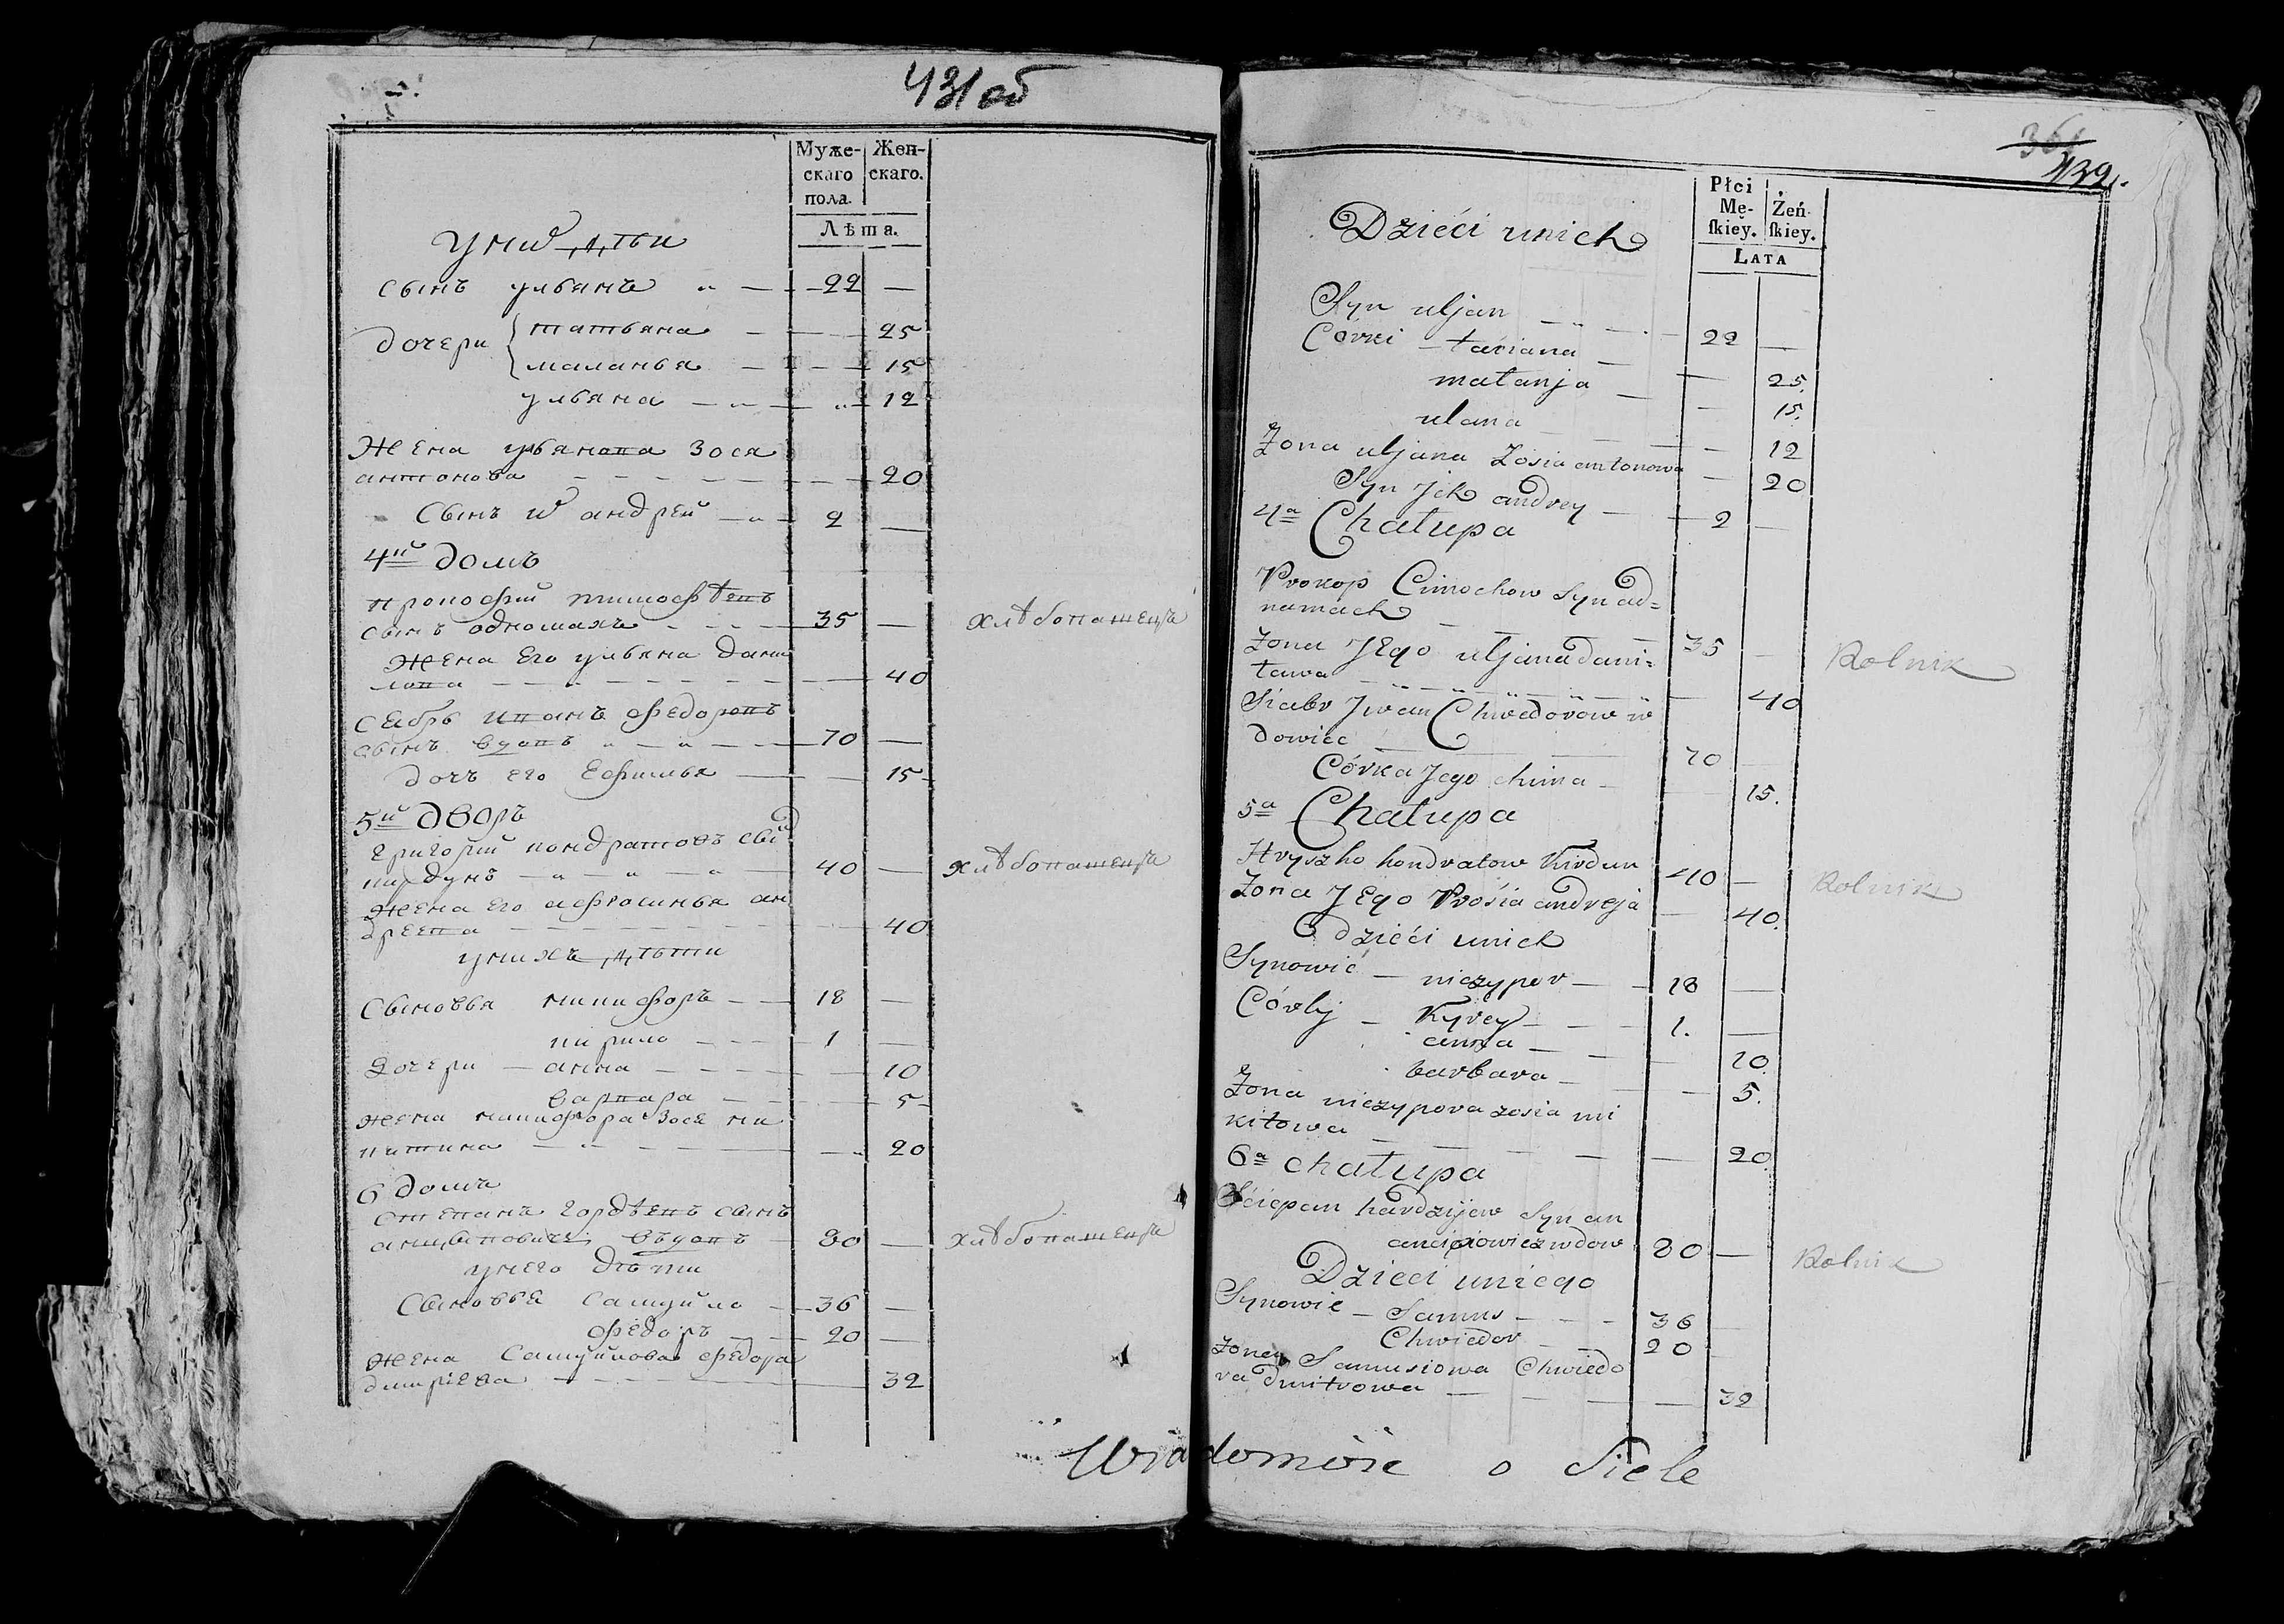 431 об
Муже- Жен-
скаго скаго.
пола.
Лѣта.
у них дѣти
сынъ ульянъ 22 —
дочери татьяна — 25
маланья — 15
ульяна — 12
Жена ульянова Зося
антонова — 20
Сынъ их андрей — 2 —
4й домъ
прокофий тимофѣевъ
сынъ адномахъ 35 — хлѣбопашецъ
Жена Его ульяна дани
лова — 40
сѣбръ иванъ федоровъ
сынъ вдовъ 70 —
дочь его Ефимья — 15
5й дворъ
григорий кондратовъ сын
кирдунъ 40 — хлѣбопашецъ
Жена Его афросинья ан
дреева — 40
у нихъ дѣти
Сыновья никифоръ — 18 —
кирило — 1 —
Дочери — анна — 10
варвара — 5
жена никифора Зося ни
китина — 20
6 домъ
степанъ гордѣевъ сынъ
вдовъ 80 — хлѣбопашецъ
у него дѣти
Сыновья самуйло 36 —
федоръ 20 —
Жена Самуйлова федора
дмитріева — 32
361
432.
Płci
Mę- Żeń-
skiey. skiey.
LATA
Dzieći unich
Syn uljan
Córki — taciana — 22 —
małanja — 25.
ulana — 15.
Żona uljana Zosia antonowa — 12
Syn Jch andrey — 20
4a Chałupa 2 —
Prokop Cimochow Syn ad=
namach
Żona JEgo uljana dani= 35 — Rolnik
ława
Siabr Jwan Chwedorow w — 40
dowiec
Córka Jego chima — 70 —
5a Chałupa 15.
Hryszko kondratow Kirdun 40 — Rolnik
Żona JEgo Prosia andreja — 40.
dzieći unich
Synowie — niczypor — 18 —
Córky — Kyrey — 1. —
anna — 10.
barbara —
Żona niczypora zosia mi — 5.
kitowa
6a chałupa — 20.
Sciepan hardzijew Syn an
wdow 80 — Rolnik
Dzieci uniego
Synowie — Samus — 36
Chwiedor — 20
Żona Samusiowa Chwiedo
ra dmitrowa — 32
Wiadomość o Siele